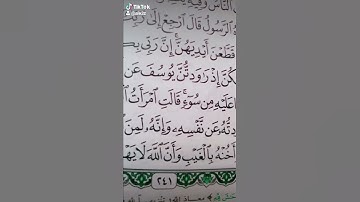 TikTok
النَّاسُ وَفِيهِ
الرَّسُولُ قَالَ ٱرْجِعْ إِلَىٰ رَبِّ
قَطَّعْنَ أَيْدِيَهُنَّ ۚ إِنَّ رَبِّي بِكَ
كُنَّ إِذْ رَٰوَدتُّنَّ يُوسُفَ عَن
عَلَيْهِ مِن سُوٓءٍ ۚ قَالَتِ ٱمْرَأَتُ ٱلْ
دتُّهُۥ عَن نَّفْسِهِۦ وَإِنَّهُۥ لَمِنَ
أَخُنْهُ بِٱلْغَيْبِ وَأَنَّ ٱللَّهَ لَا يَهْ
٢٤١